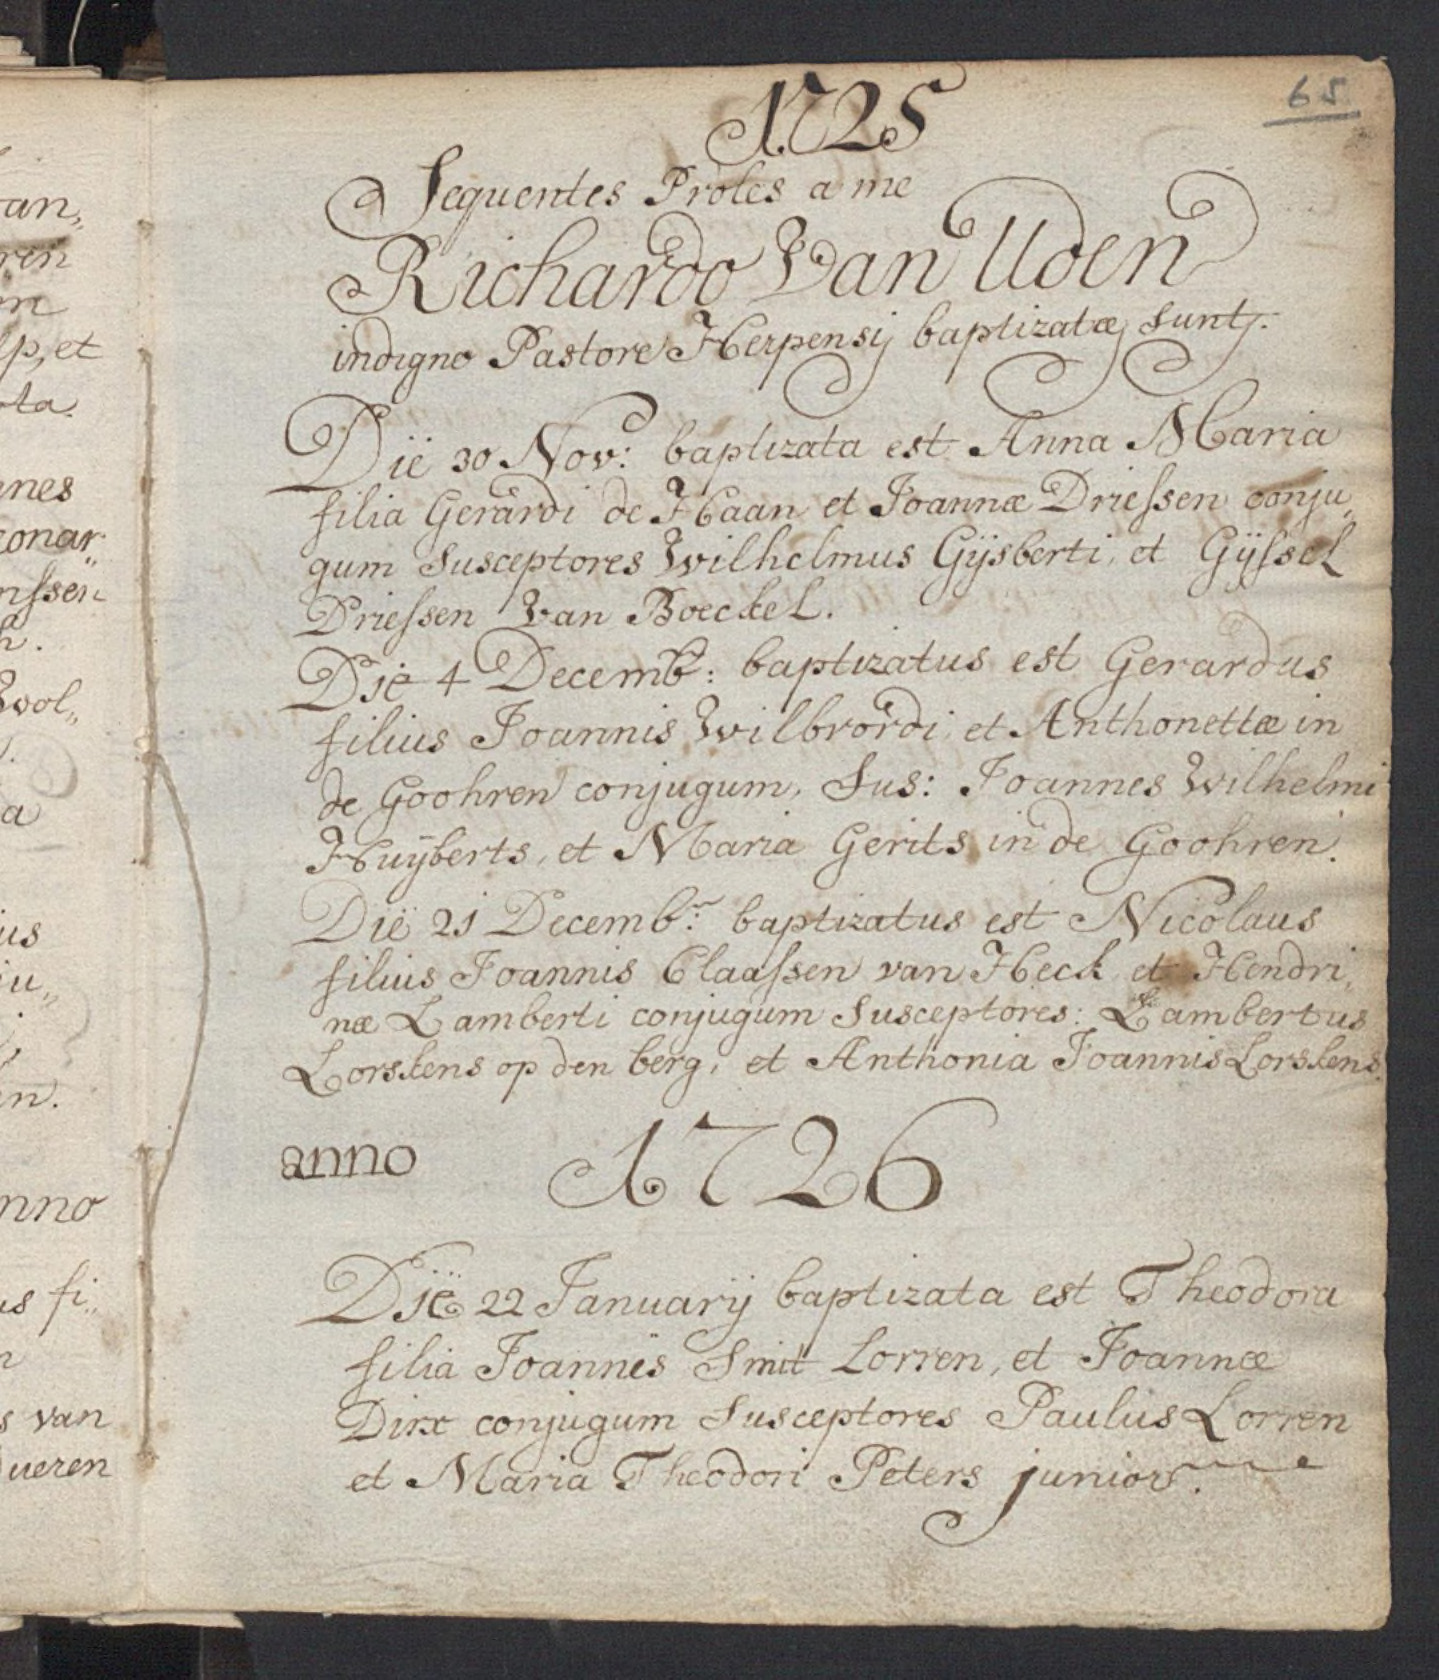 an„
ren
m
lp, et
ota.
nnes
conar„
nssen
n.
Wol„
a
ius
ju„
en.
nno
us fi„
n
s van
ueren
65
1725
Sequentes Proles a me
Richardo Van Uden
indigno Pastore Herpensij baptizatæ sunt.
Die 30 Nov: baptizata est Anna Maria
filia Gerardi de Haan et Joannæ Driessen conju„
gum Susceptores Wilhelmus Gijsberti, et Gijssel
Driessen Van Boeckel.
Die 4 Decemb: baptizatus est Gerardus
filius Joannis Wilbrordi et Anthonettæ in
de Goohren conjugum, Sus: Joannes Wilhelmi
Huijberts, et Maria Gerits in de Goohren.
Die 21 Decemb: baptizatus est Nicolaus
filius Joannis Claassen van Heck et Hendri„
næ Lamberti conjugum Susceptores: Lambertus
Lorskens op den berg, et Anthonia Joannis Lorskens.
anno 1726
Die 22 Januarij baptizata est Theodora
filia Joannis Smit Lorren, et Joannæ
Dirx conjugum Susceptores Paulus Lorren
et Maria Theodori Peters junior.